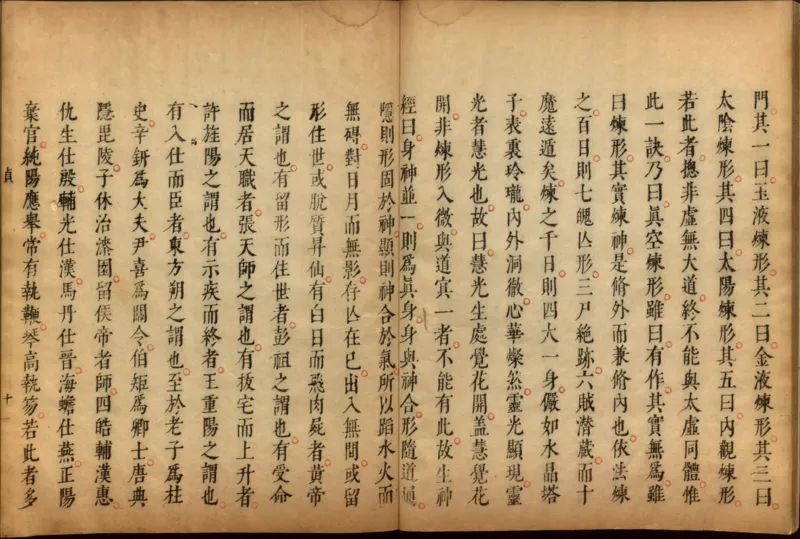 門其一曰玉液練形其二曰金液練形其三曰
太陰練形其四曰太陽練形其五曰內觀練形
若此者摠非虛無大道終不能與太虛同體惟
此一訣乃曰眞空練形雖曰有作其實無爲雖
曰練形其實練神是脩外而兼脩內也依法練
之百日則七魄亾形三尸絶跡六賊潜蔵而十
魔遠遁矣練之千日則四大一身儼如水晶塔
子表裏玲瓏內外洞徹心華燦然靈光顯現靈
光者慧光也故曰慧光生處覺花開盖慧覺花
開非練形入微與道宾一者不能有此故生神
經曰身神並一則爲眞身身與神合形隨道通
隱則形固於神顯則神合於氣所以蹈水火而
無碍對日月而無影存亾在巳出入無間或留
形住世或脫質昇仙有白日而飛肉屍者黄帝
之謂也有留形而住世者彭祖之謂也有受命
而居天職者張天師之謂也有拔宅而上升者
許旌陽之謂也有示疾而終者王重陽之謂也
有入仕而臣者東方朔之謂也至於老子爲柱
史辛鈃爲大夫尹喜爲關令伯矩爲卿士唐典
隱毘陵子休治漆園留侯帝者師四皓輔漢惠
仇生仕殷輔光仕漢馬丹仕晋海蟾仕燕正陽
棄官純陽應舉常有執鞭琴高執笏若此者多
貞
十